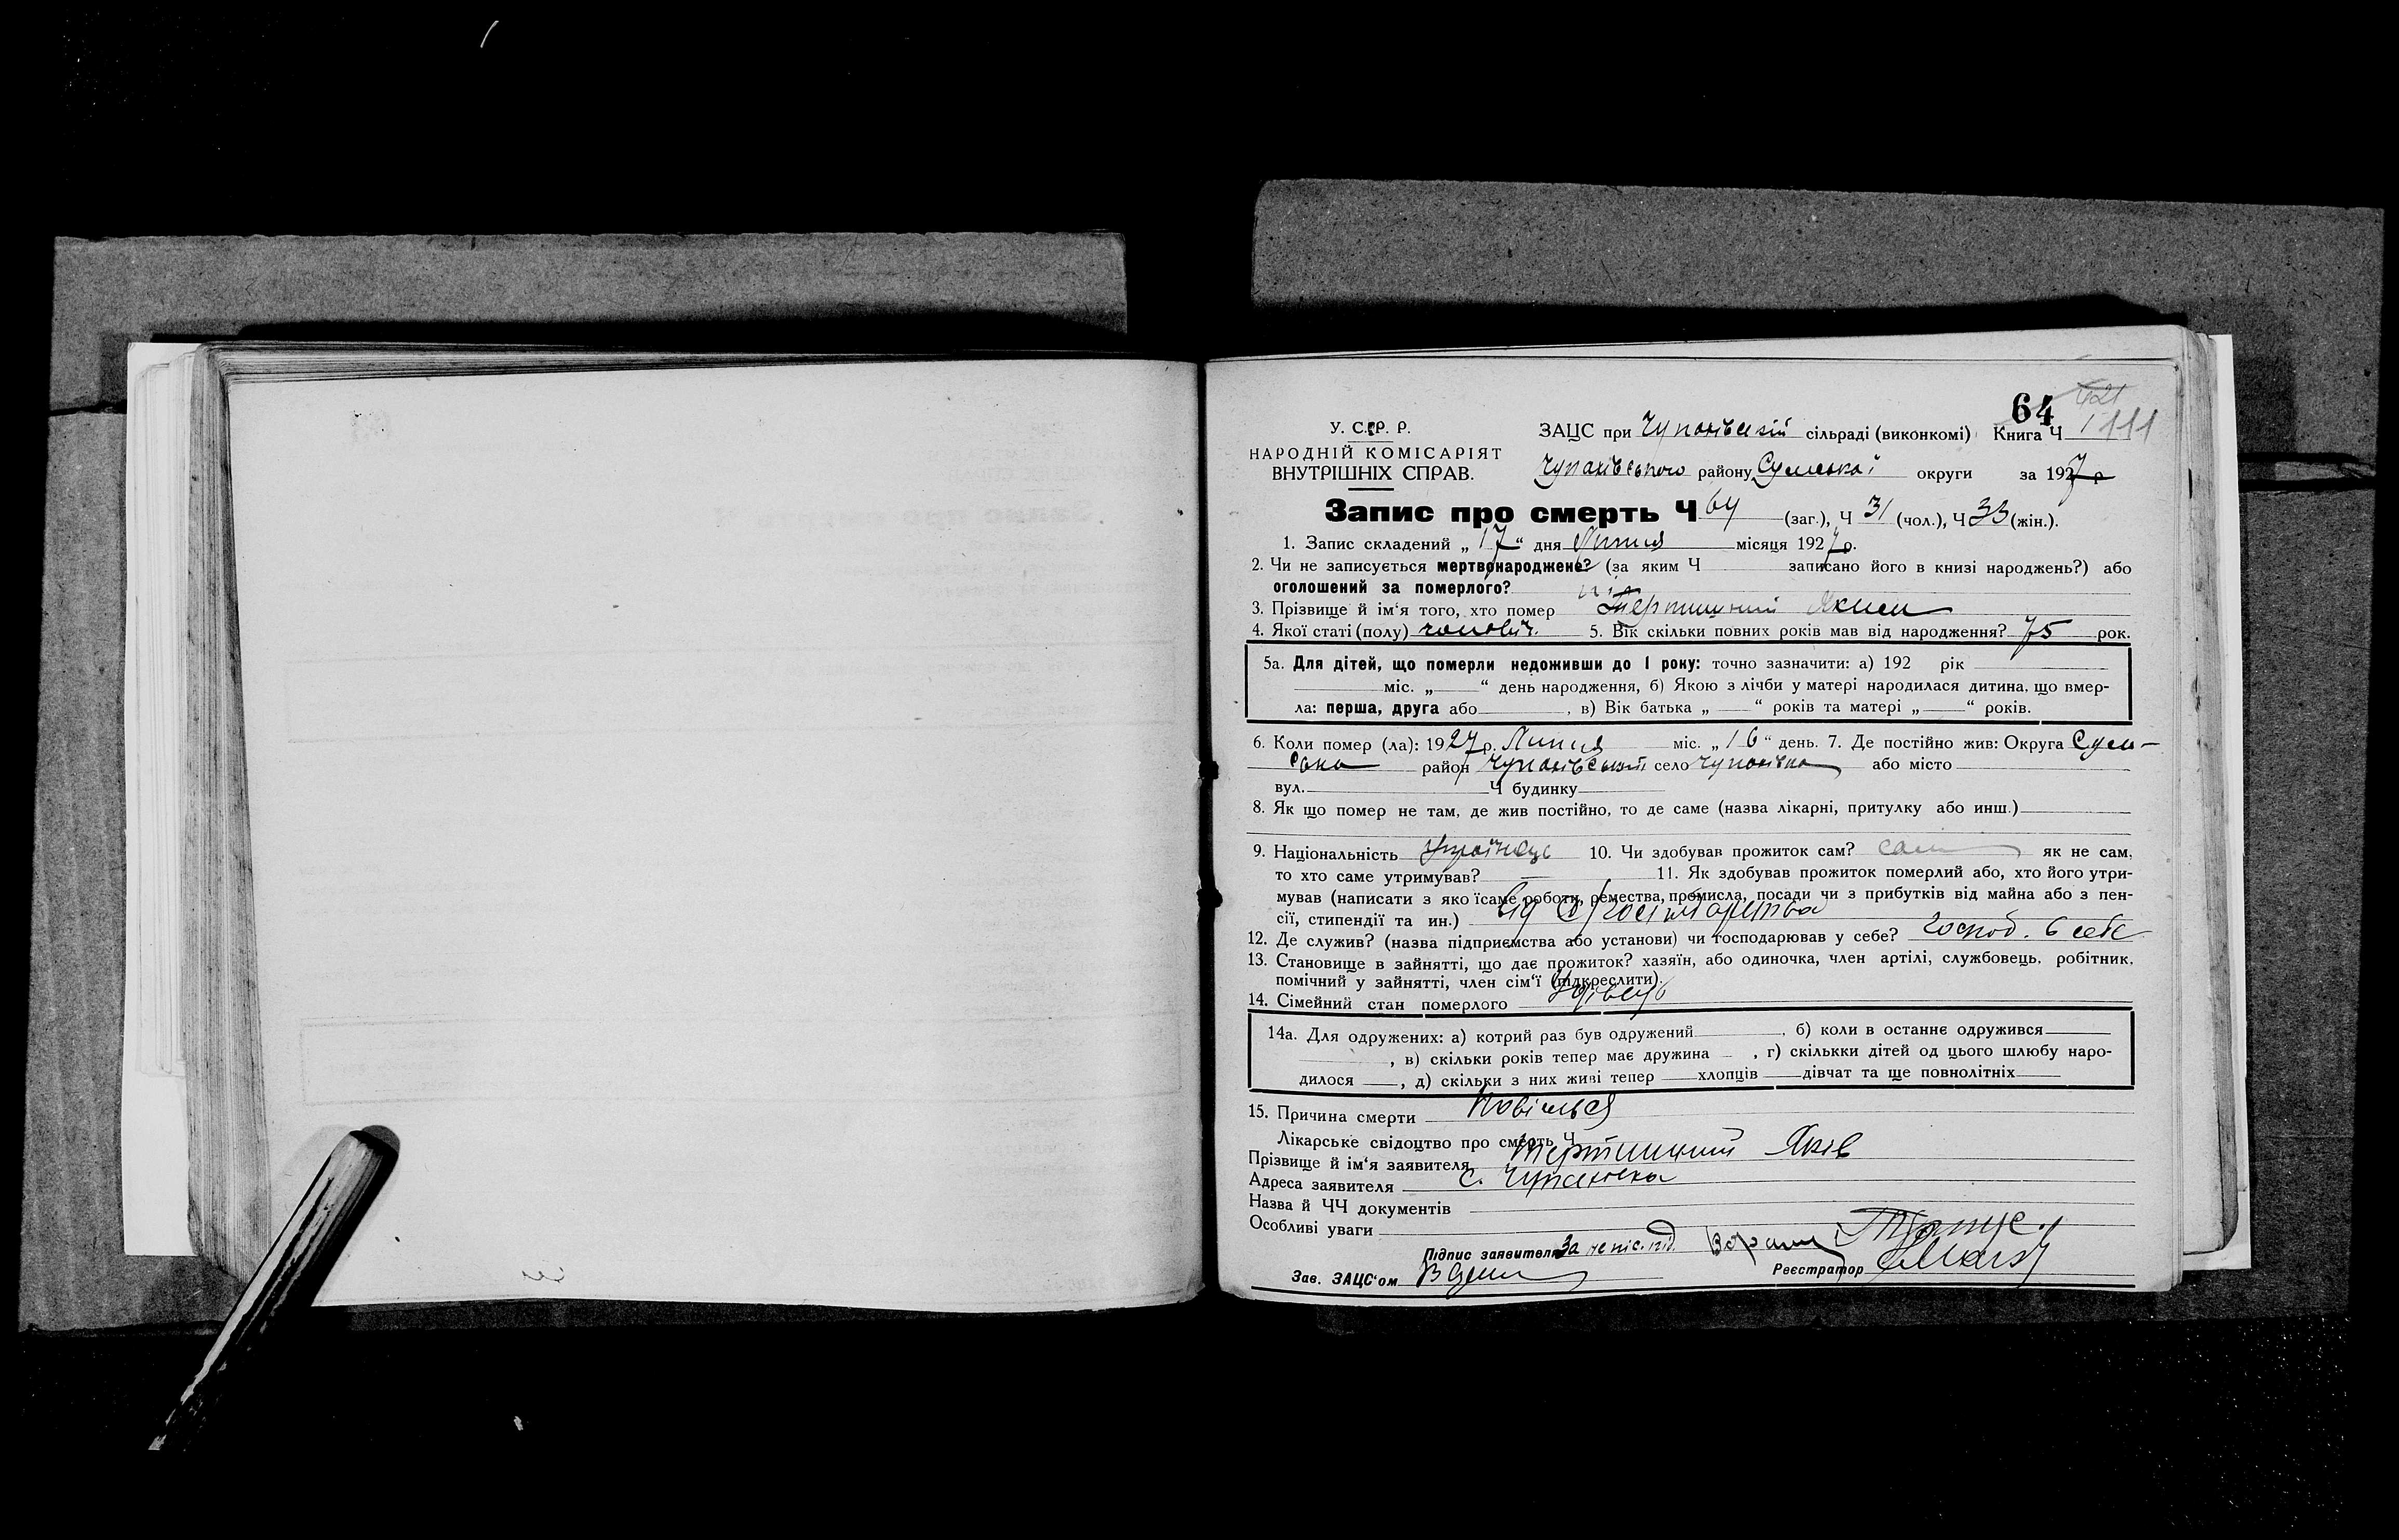 64
1111
У. С. Р. Р.
НАРОДНІЙ КОМІСАРІЯТ
ВНУТРІШНІХ СПРАВ.
ЗАЦС при Чупахівській сільраді (виконкомі) Книга Ч
Чупахівського району Сумської округи за 1927 р
Запис про смерть Ч 64 (заг.), Ч 31 (чол.), Ч 33 (жін.).
1. Запис складений „ 17 “ дня Липня місяця 1927 р.
2. Чи не записується мертвонароджене? (за яким Ч записано його в книзі народжень?) або
оголошений за померлого? ні
3. Прізвище й ім‘я того, хто помер Тертишний Яким
4. Якої статі (полу) чоловіч. 5. Вік скільки повних років мав від народження? 75 рок.
5а. Для дітей, що померли недоживши до 1 року: точно зазначити: а) 192 рік
міс. „ “ день народження, б) Якою з лічби у матері народилася дитина, що вмер-
ла: перша, друга або , в) Вік батька „ “ років та матері „ “ років.
6. Коли помер (ла): 1927 р. Липня міс. „ 16 “ день. 7. Де постійно жив: Округа Сум-
ська район Чупахівський село Чупахівка або місто
вул. Ч будинку
8. Як що помер не там, де жив постійно, то де саме (назва лікарні, притулку або инш.)
9. Національність Українець 10. Чи здобував прожиток сам? сам як не сам,
то хто саме утримував? — 11. Як здобував прожиток померлий або, хто його утри-
мував (написати з якоїсаме роботи, ремества, промисла, посади чи з прибутків від майна або з пен-
сії, стипендії та ин.) від С/господарства
12. Де служив? (назва підприємства або установи) чи господарював у себе? господ. в себе
13. Становище в зайнятті, що дає прожиток? хазяїн, або одиночка, член артілі, службовець, робітник,
помічний у зайнятті, член сім‘ї (підкреслити).
14. Сімейний стан померлого Удівець
14а. Для одружених: а) котрий раз був одружений , б) коли в останнє одружився
, в) скільки років тепер має дружина — , г) скількки дітей од цього шлюбу наро-
дилося , д) скільки з них живі тепер хлопців дівчат та ще повнолітніх
15. Причина смерти
Лікарське свідоцтво про смерть Ч
Прізвище й ім‘я заявителя Тертишний Яків
Адреса заявителя с. Чупахівка
Назва й ЧЧ документів
Особливі уваги
Підпис заявителя За непис. під.
Зав. ЗАЦС‘ом Реєстратор